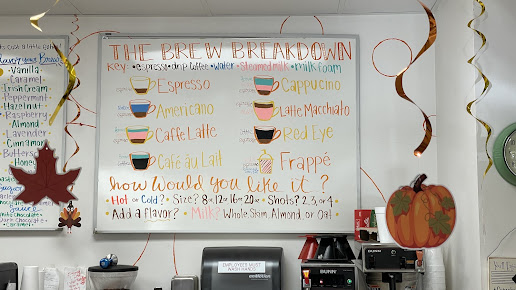 THE BREW BREAKDOWN
Key: • espresso • drip coffee • water • steamed milk • milk foam
Espresso
Cappucino
Americano
Latte Macchiato
Caffe Latte
Red Eye
Café au Lait
Frappé
how would you like it?
• Hot or Cold? • Size? 8 • 12 • 16 • 20 • Shots? 2, 3, or 4
• Add a Flavor? • Milk? Whole, Skim, Almond, or Oat
Flavor your Brew
• Vanilla
• Caramel
Irish Cream
Peppermint
Hazelnut
Raspberry
• Almond
• Lavender
Cinnamon
Honey
Dark Chocolate
• Caramel
EMPLOYEES MUST
WASH HANDS
BUNN
BUNN